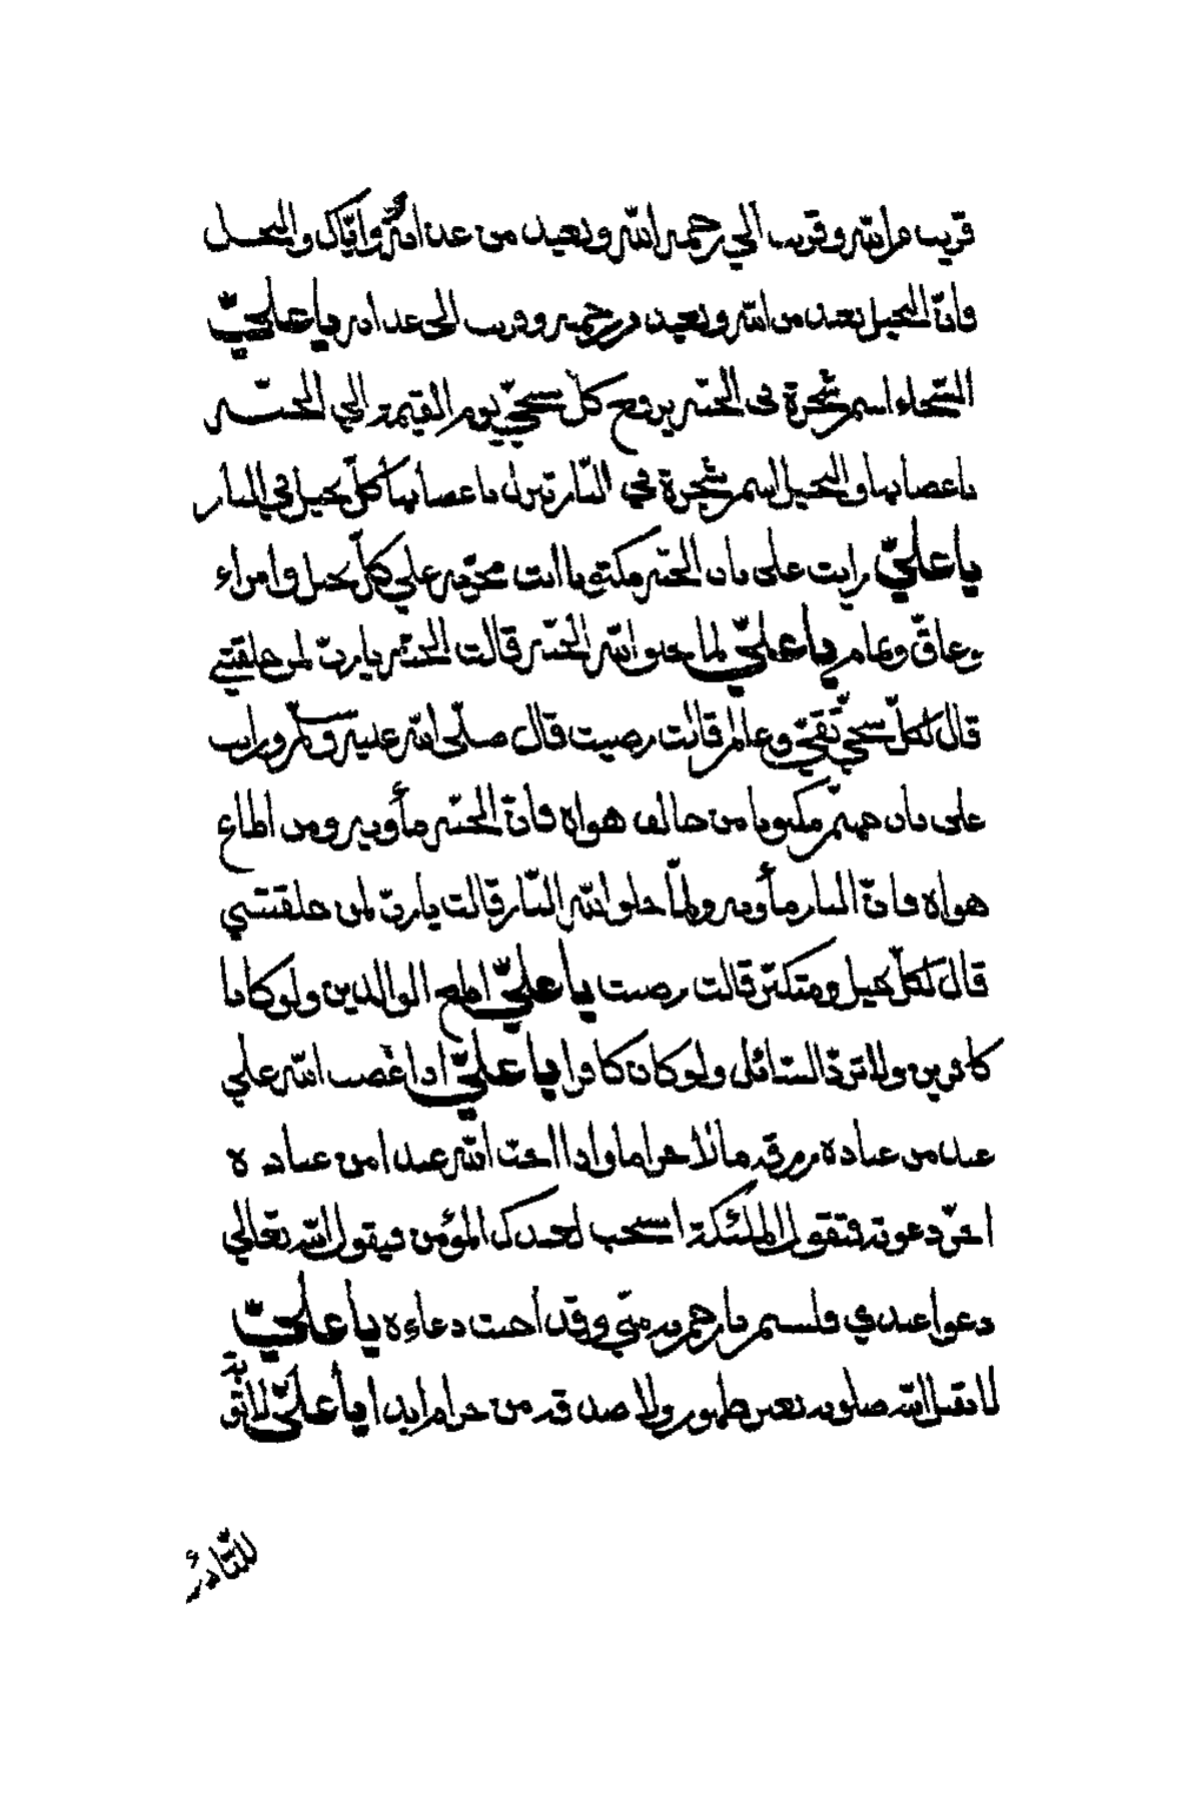 قريب من الله وقريب الي رحمة الله وبعيد من عذاب الله واياك والبخل
فان البخيل بعيد من الله وبعيد من رحمته وقريب الى عذابه يا عليّ
السخاء اسم شجرة في الجنة يروح كل سخيّ يوم القيمة الي الجنة
باغصانها والبخيل اسم شجرة في النار تنزل باغصانها كلّ بخيل في النار
يا عليّ رايت على باب الجنة مكتوبا انت محرّمة علي كلّ بخيل وامراء
وعاقّ ونمام يا عليّ لما خلق الله الجنة قالت الجنة يا ربّ لمن خلقتني
قال لكلّ سخيّ تقيّ وعالم قالت رضيت قال صلّى الله عليه وسلّم ورايت
على باب جهنّم مكتوبا من خالف هواه فانّ الجنّة مأويه ومن اطاع
هواه فانّ النار مأويه ولمّا خلق الله النّار قالت يا ربّ لمن خلقتني
قال لكلّ بخيل ومتكبّر قالت رضيت يا عليّ اطع الوالدين ولو كانا
كافرين ولا تردّ السّائل ولو كان كافرا يا عليّ اذا غضب الله علي
عبد من عباده رزقه مالا حراما واذا احبّ الله عبدا من عباده
اخّر دعوته فتقول الملئكة استجب لعبدك المؤمن فيقول الله تعالي
دعوا عبدي فليس بارحم به منّي وقد أجبت دعاءه يا عليّ
لا يقبل الله صلوة بغير طهور ولا صدقة من حرام ابدا يا عليّ لا تؤ